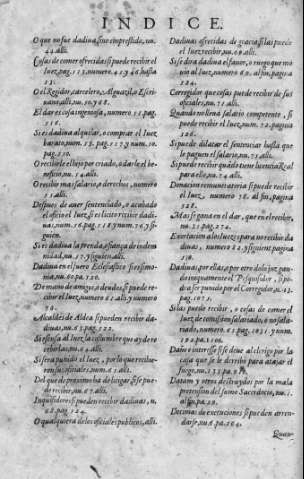 INDICE.
O que no sue dadiua, sino emprestido, nu.
44. alli.
Cosas de comer ofrecidas si puede recibir el
Iuez, pag. 113, numero. 43 46 hasta
O el Regidor, carcelero, Alguazil, o Escri-
uano, alli, nu. 50. y 68.
El dar es cosa ingeniosa, numero 51. pag.
116.
Si es dadiua alquilar, o comprar el Iuez
barato, num. 53. pag. 117. y num. 20.
pag. 110.
O recibirle el hijo por criado, o darle el be-
neficio, nu. 14. alli.
O recibir mas salario, o derechos, numero
alli.
Despues de auer sentenciado, o acabado
el oficio el Iuez si es licito recibir dadi-
uas, num. 56. pag. 118. y num. 76. y si-
guien.
Si es dadiua la prenda, o fiança de indem
nidad, nu. 57. y siguien. alli.
Dadiua en el juez Eclesiastico si es simo-
nia, nu. 60. pa. 120.
De mano de amigo, o deudo si puede re-
cibir el Iuez, numero 61. alli. y numero
70.
Alcaldes de Aldea si pueden recibir da
diuas, nu. 63. pag. 122.
Si escusa al Iuez la costumbre que ay de re
cebirlas, nu. 64. alli.
Si sera punido el Iuez, por lo que recibie-
ren sus oficiales, num. 65. alli.
Del que da prometha de juzgar si se pue-
de recibir, nu. 67. alli.
Inquisidores si pueden recibir dadiuas, n.
68. pag. 124.
O qualquiera de los oficiales publicos, alli.
Dadiuas ofrecidas de gracia si las puede
el Iuez recibir, nu. 69. alli.
Si se dira dadiua el fauor, o ruego que mo
uio al Iuez, numero 69. al fin, pagin a
124.
Corregidor que cosas puede recibir de sus
oficiales, nu. 71. alli.
Quando no lleua salario competente, si
puede recibir el Iuez, num. 72. pagina
126.
Si puede dilatar el sentenciar hasta que
le paguen el salario, nu. 73. alli.
Si puede recibir quãdo tiene licencia Real
para ello, nu. 74. alli.
Donacion remuneratoria si puede recibir
el Iuez, numero 78. al fin, pagina
128.
Mas se gana en el dar, que en el recibir,
nu. 25. pag. 274.
Exortacion a los Iuezes para no recibir da
diuas, numero 82. y siguient. pagina
130.
Dadiuas por ellas, o por otro dolo juzgan
do iniquamente el Pesquisidor, si po-
dra ser punido por el Corregidor, n. 13.
pag. 1071.
Si las puede recibir, o cosas de comer el
Iuez de comission salariado, o no sala-
riado, numero 63. pag. 1031. y num.
192. pa. 1100.
Daño e interesse si se deue al clerigo por la
causa que se le derribo para atajar el
fuego, nu. 133. pa. 978.
Datam y otros destruydos por la mala
pretension del sumo Sacerdocio, nu. 1.
al fin. pa. 19.
Decimas de execuciones si pueden arren-
darse, nu. 6. pa. 264.
Quan-